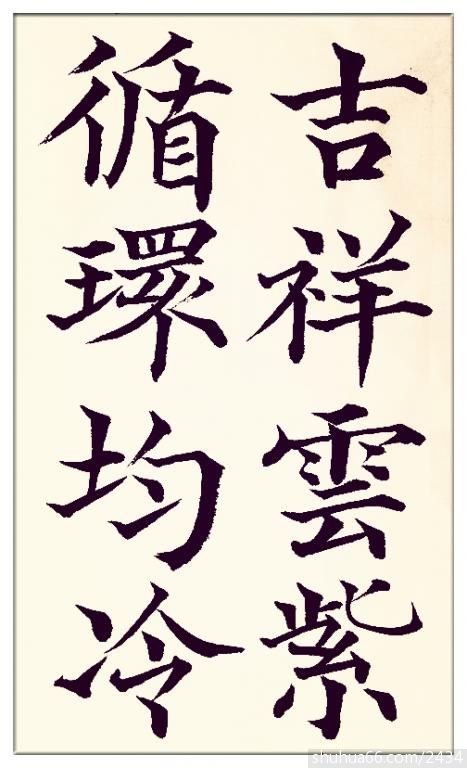 吉祥雲紫
循環均冷
shuhua66.com/2434